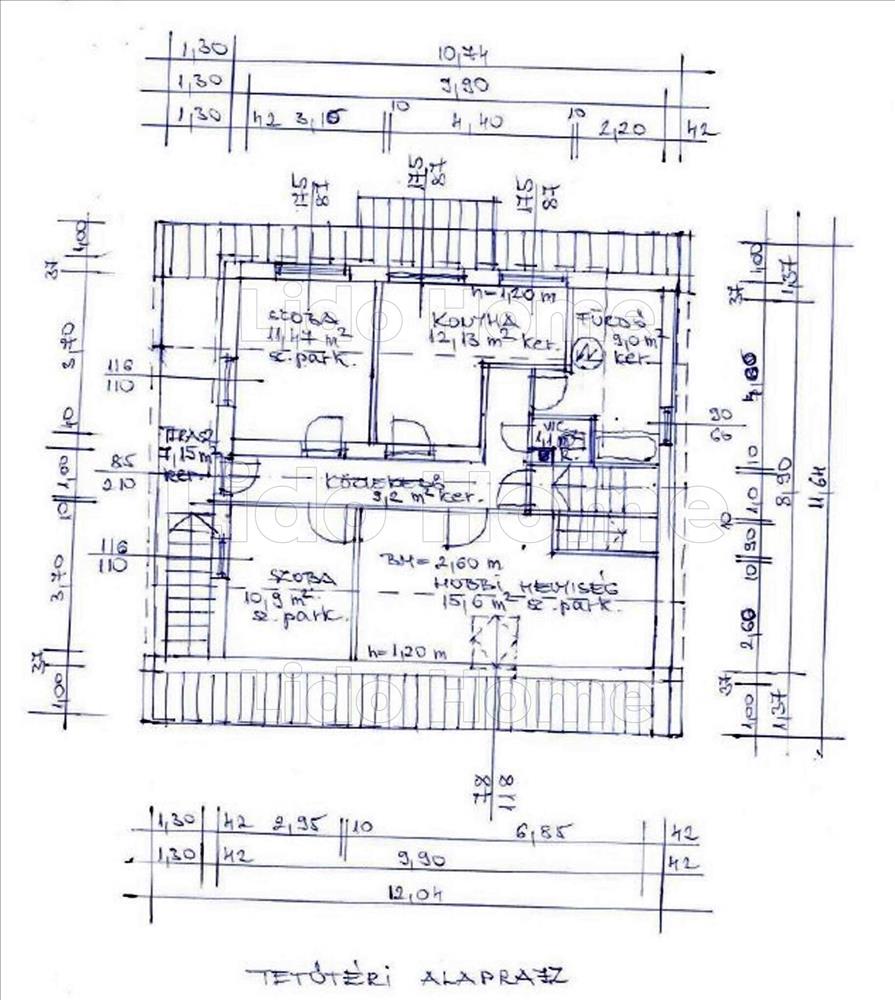 1,30 10,74
1,30 9,90
1,30 42 3,15 10 4,40 10 2,20 42
175 87
175 87
175 87
1,00
37
3,70
10
1,00
10
3,70
37
1,00
h=1,20 m
SZOBA
11,47 m²
sz.park.
KONYHA
12,13 m² ker.
FÜRDŐ
9,0 m²
ker.
116
110
TERASZ
7,15 m²
ker.
WC
1,1 m²
K.
90
66
85
210
KÖZLEKEDŐ
9,2 m² ker.
116
110
BM=2,60 m
SZOBA
10,9 m²
sz.park.
HOBBI HELYISÉG
15,6 m² sz.park.
h=1,20 m
1,00
37
1,37
10
1,10
8,90
11,64
10
90
10
2,60
37
1,00
1,37
78
118
1,30 42 2,95 10 6,85 42
1,30 42 9,90 42
12,04
TETŐTÉRI ALAPRAJZ
Lido Home
Lido Home
Lido Home